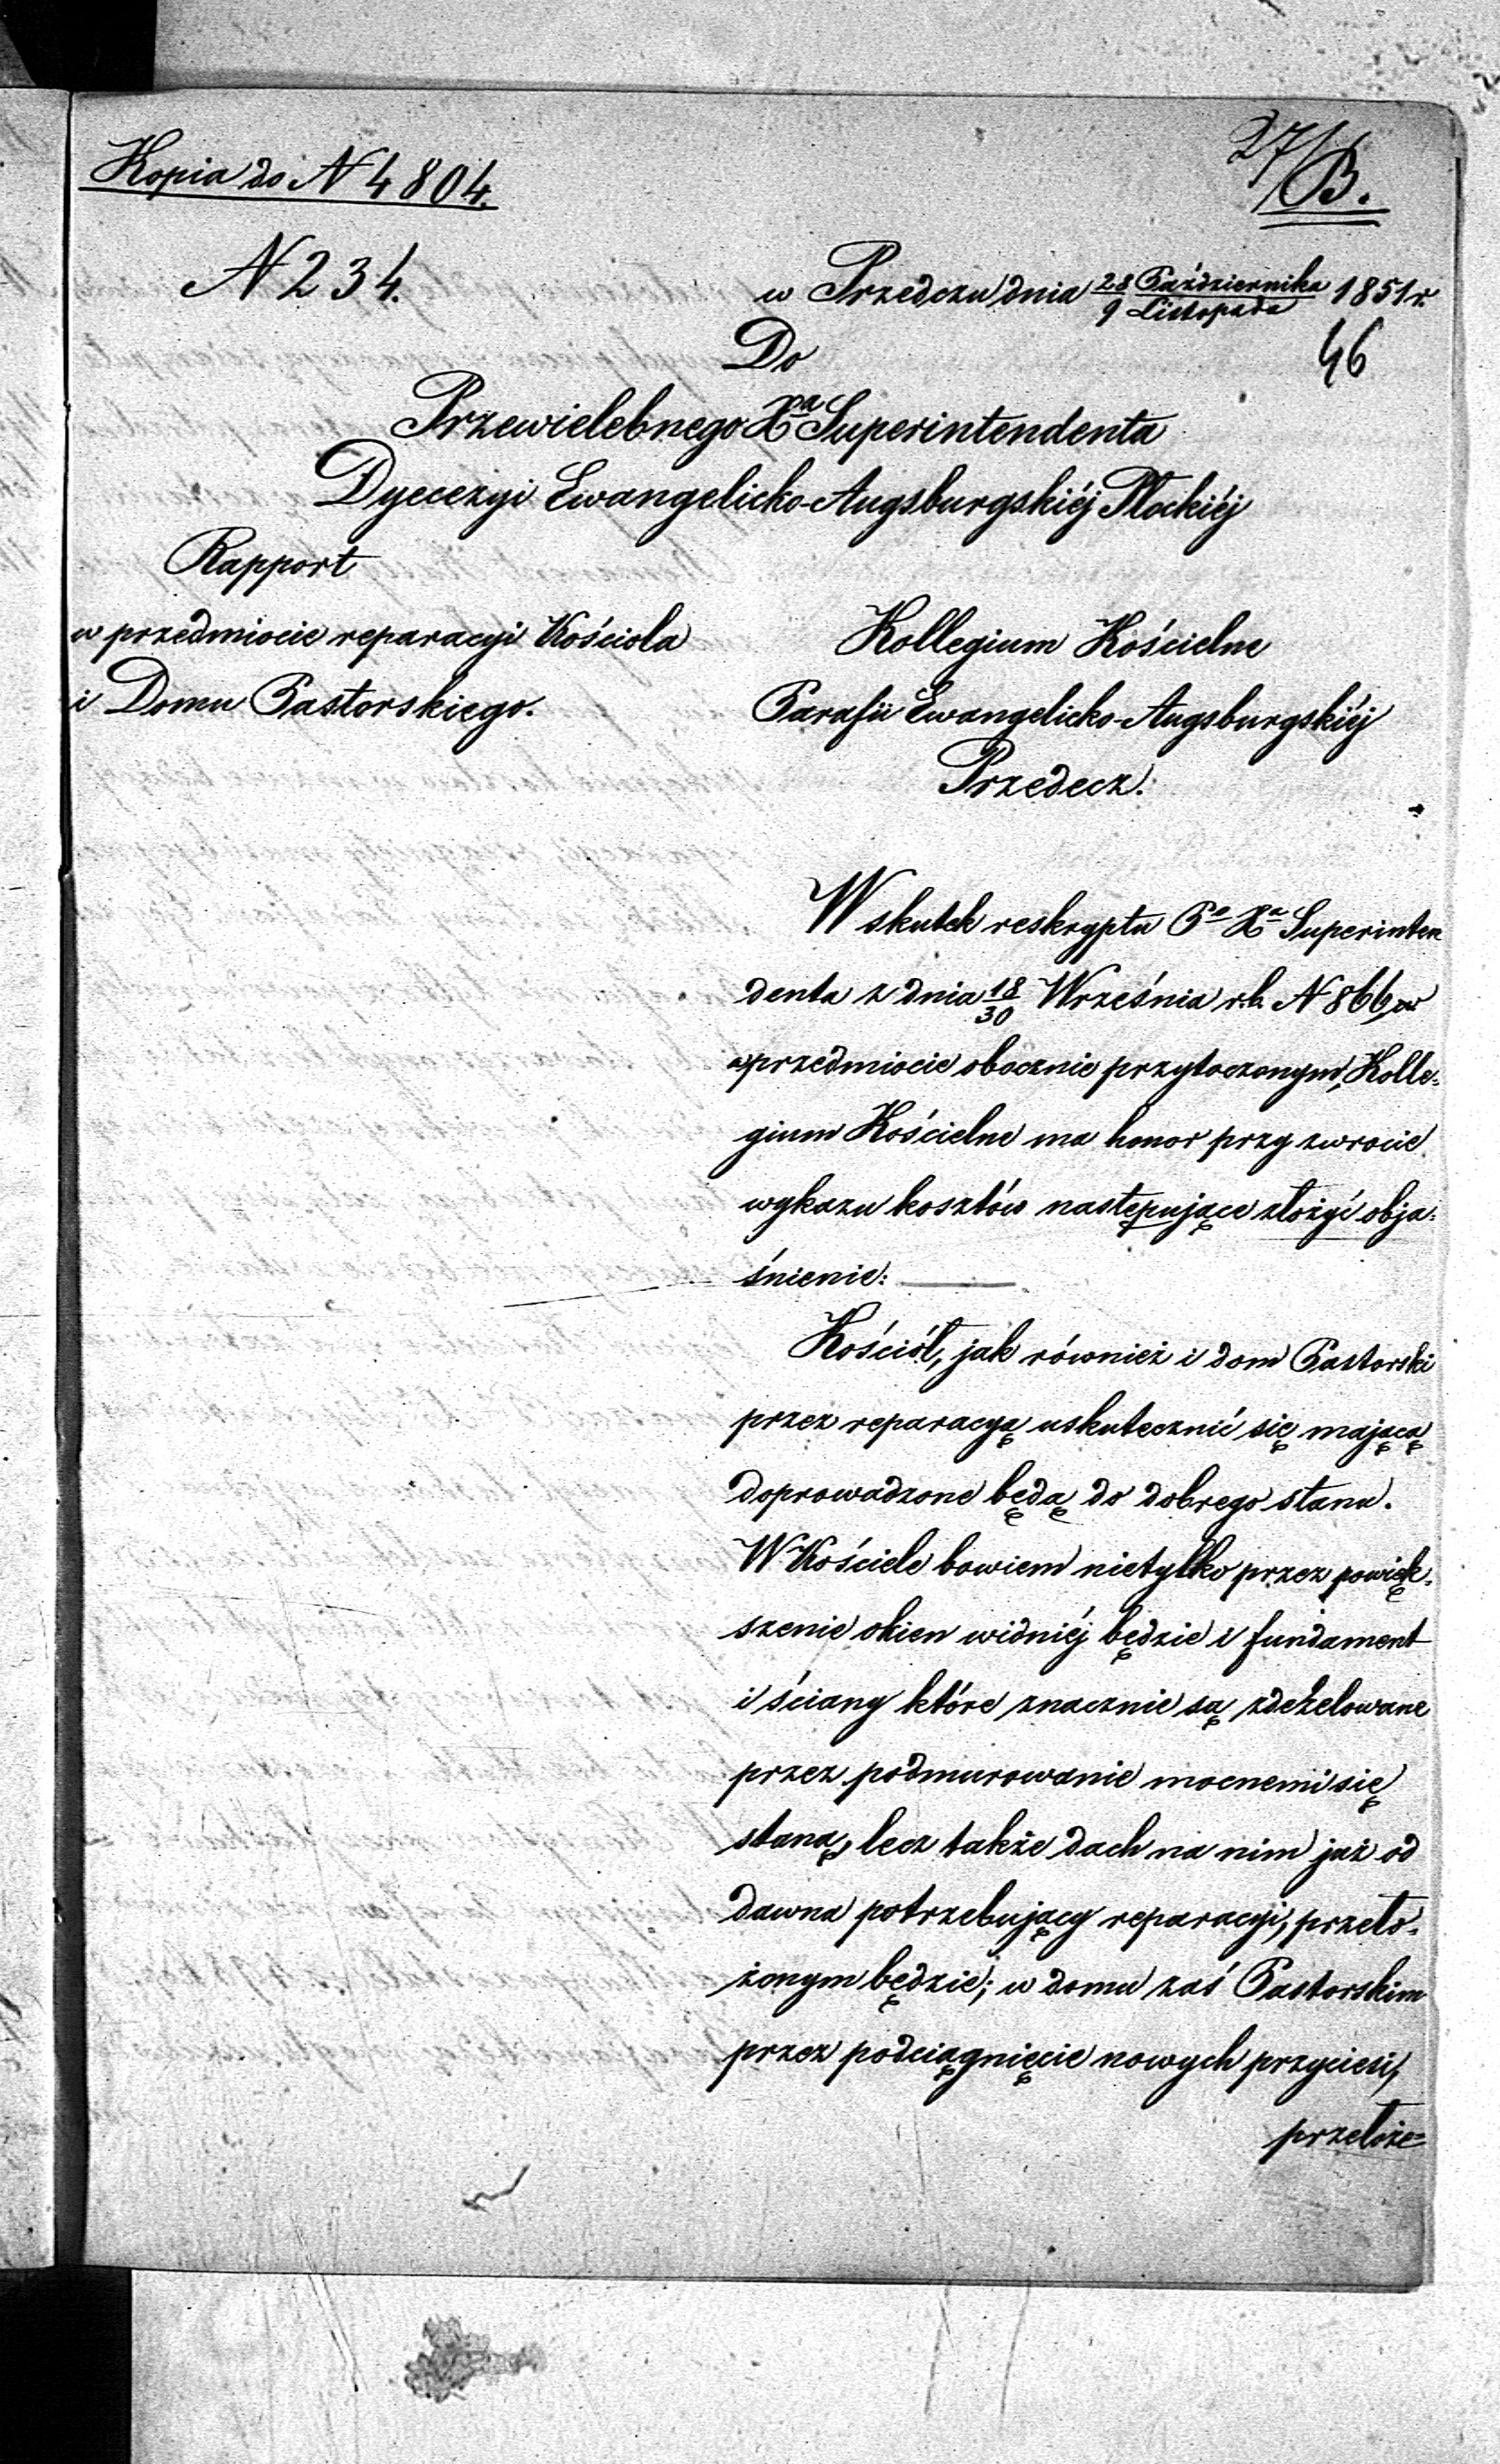 27/B.
Kopia do N 4804.
N 234.
w Przedczu dnia 28 Października / 9 Listopada 1851 r.
46
Do
Przewielebnego Xa Superintendenta
Dyecezyi Ewangelicko-Augsburgskiéj Płockiéj
Rapport
w przedmiocie reparacyi Kościoła
i Domu Pastorskiego.
Kollegium Kościelne
Parafii Ewangelicko-Augsburgskiéj
Przedecz.
W skutek reskryptu Po Xa Superinten
denta z dnia 18/30 Września r.b. N 866, w
w przedmiocie obocznie przytoczonym, Kolle-
gium Kościelne ma honor przy zwrocie
wykazu kosztów następujące złożyć obja-
śnienie:
Kościół, jak również i dom Pastorski
przez reparacyą uskutecznić się mającą
doprowadzone będą do dobrego stanu.
W Kościele bowiem nietylko przez powięk-
szenie okien widniéj będzie i fundament
i ściany które znacznie są zdezelowane
przez podmurowanie mocnemi się
staną, lecz także dach na nim już od
dawna potrzebujący reparacyi, przeło-
żonym będzie; w domu zaś Pastorskim
przez podciągnięcie nowych przyciesi,
przełoże=